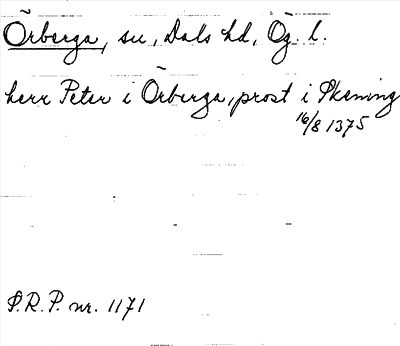 Örberga, sn, Dals hd, Ög. l.
herr Peter i Örberga, prost i Skening
16/8 1375
S.R.P. nr. 1171